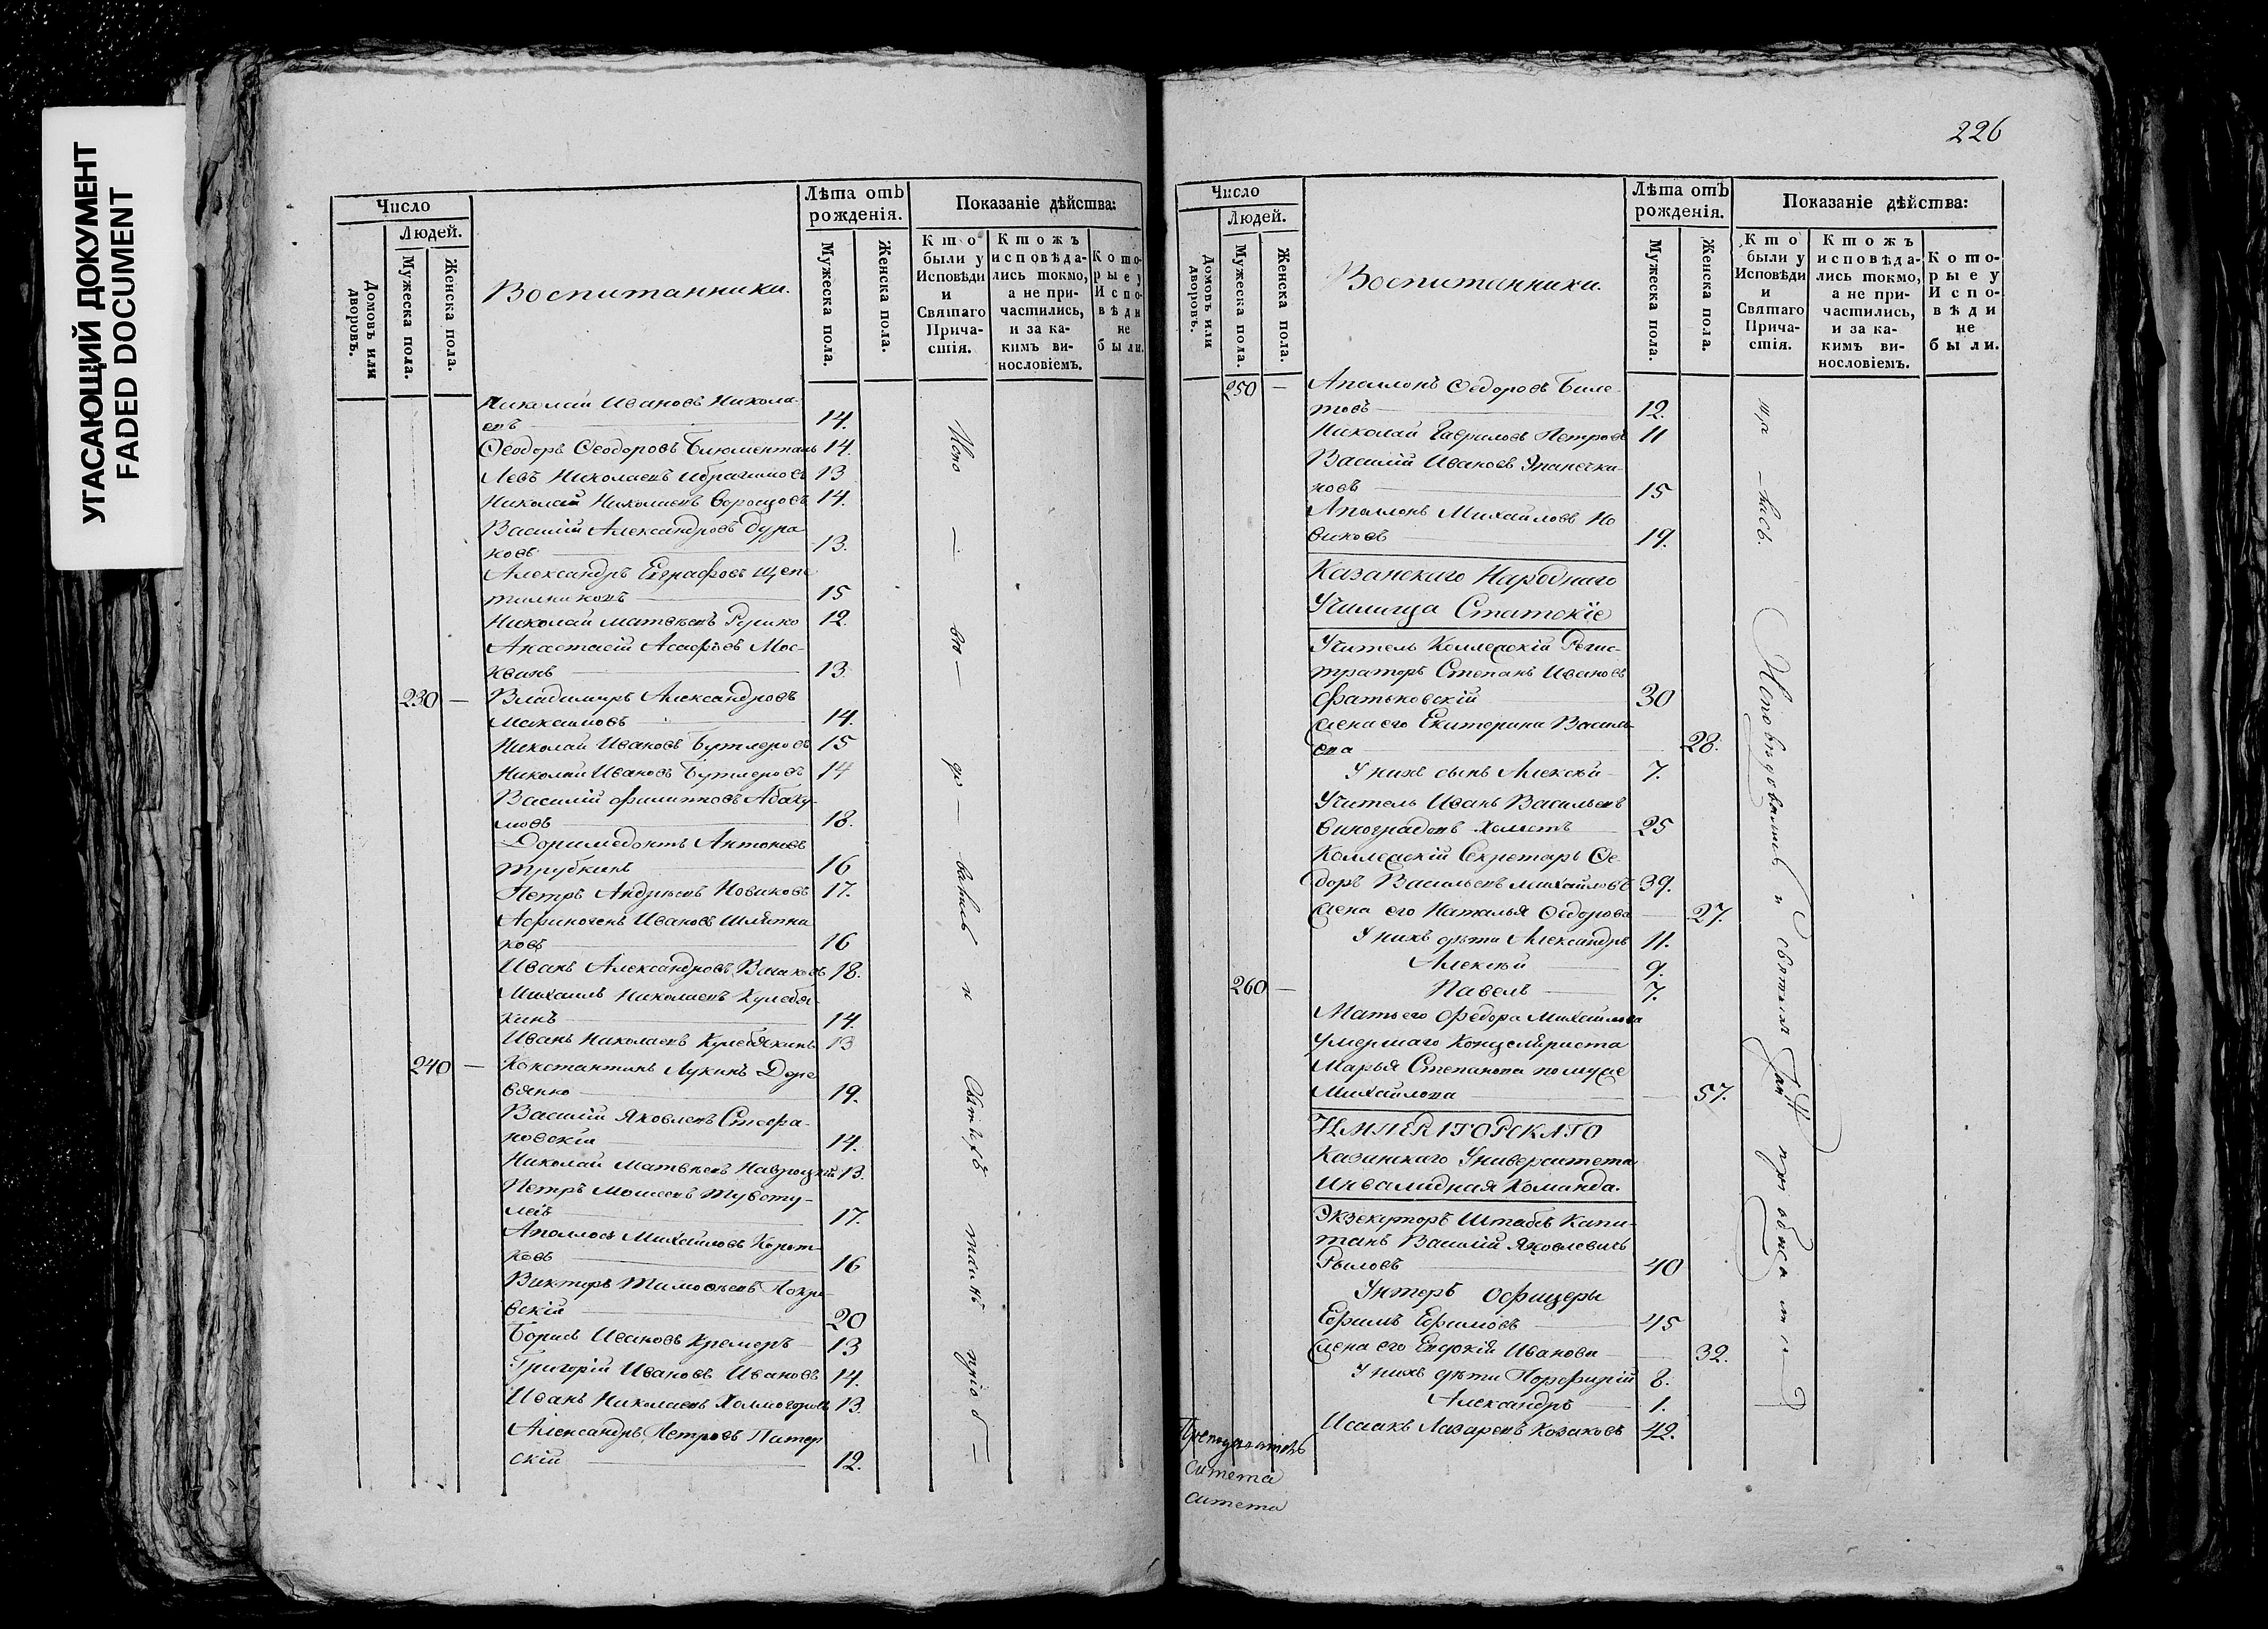 УГАСАЮЩИЙ ДОКУМЕНТ
FADED DOCUMENT
Число
Людей.
Домовъ или дворовъ.
Мужеска пола.
Женска пола.
Воспитанники.
Лѣта отъ рожденія.
Мужеска пола.
Женска пола.
Показаніе дѣйства:
Кто были у Исповѣди и Святаго Причастія.
Ктожъ исповѣдались токмо, а не причастились, и за какимъ винословіемъ.
Которые у Исповѣди не были.
Николай Ивановъ Никола-
евъ 14.
Ѳеодоръ Ѳеодоровъ Блюменталь 14.
Левъ Николаевъ Ибрагимовъ 13
Николай Николаевъ 14.
Василій Александровъ Дура
ковъ 13.
Александръ Евграфовъ Щепе
тильниковъ 15
Николай Матвѣевъ Рушко 12
Анастасій Асафовъ Мос-
квинъ 13.
230 — Владимиръ Александровъ
Максимовъ 14.
Николай Ивановъ Бутлеровъ 15
Николай Ивановъ Бутлеровъ 14
Василій Филиповъ Абаку-
мовъ 18.
Доримедонтъ Антоновъ
Трубкинъ 16
Петръ Андреевъ Новиковъ 17.
Афиногенъ Ивановъ Шляпни
ковъ 16
Иванъ Александровъ 18.
Михаилъ Николаевъ Кулебя-
кинъ 14.
Иванъ Николаевъ Кулебякинъ 13
240 — Константинъ Лукинъ Дере
вянко 19.
Василій Яковлевъ Стефа-
новскій 14.
Николай Матвѣевъ Навроцкій 13.
Петръ Моисеевъ
17.
Аполлосъ Михайловъ Корот-
ковъ 16
Викторъ Тимоѳеевъ Покро
вскій 20
Борисъ Ивановъ Кремеръ 13
Григорій Ивановъ Ивановъ 14.
Иванъ Николаевъ Холмогоровъ 13.
Александръ Петровъ Питер
скій 12.
Испо — вѣ — до — вались и Святыхъ таинъ пріоб =
226
Число
Людей.
Домовъ или дворовъ.
Мужеска пола.
Женска пола.
Воспитанники.
Лѣта отъ рожденія.
Мужеска пола.
Женска пола.
Показаніе дѣйства:
Кто были у Исповѣди и Святаго Причастія.
Ктожъ исповѣдались токмо, а не причастились, и за какимъ винословіемъ.
Которые у Исповѣди не были.
250 — Аполлонъ Ѳедоровъ Биле-
товъ 12.
Николай Гавриловъ Петровъ 11
Василій Ивановъ Епанечни-
ковъ 15
Аполлонъ Михайловъ Но
виковъ 19.
Казанскаго Народнаго
Училища Статскіе
Учитель Коллежскій Регис-
траторъ Степанъ Ивановъ
30
Жена его Екатерина Василь
ева 28.
У нихъ сынъ Алексѣй 7.
Учитель Иванъ Васильевъ
Виноградовъ Холостъ 25
Коллежскій Секретарь Ѳе
доръ Васильевъ Михайловъ 39.
Жена его Наталья Ѳедорова 27.
У нихъ дѣти Александръ 11.
Алексѣй 9.
260 — Павелъ 7.
Мать его Федора Михайлова
умершаго Канцеляриста
Марья Степанова по мужѣ
Михайлова 57.
ИМПЕРАТОРСКАГО
Казанскаго Университета
Инвалидная Команда.
Экзекуторъ Штабсъ Капи-
танъ Василій Яковлевичь
Рыловъ 40
Унтеръ Офицеры
Ефимъ Ефимовъ 45
Жена его Евдокія Иванова 32.
У нихъ дѣти Порфирій 8.
Александръ 1.
Исаакъ Лазаревъ Козаковъ 42.
ща — лись.
Исповѣдовались и Святыхъ Таинъ пріобща
ситета
ситета